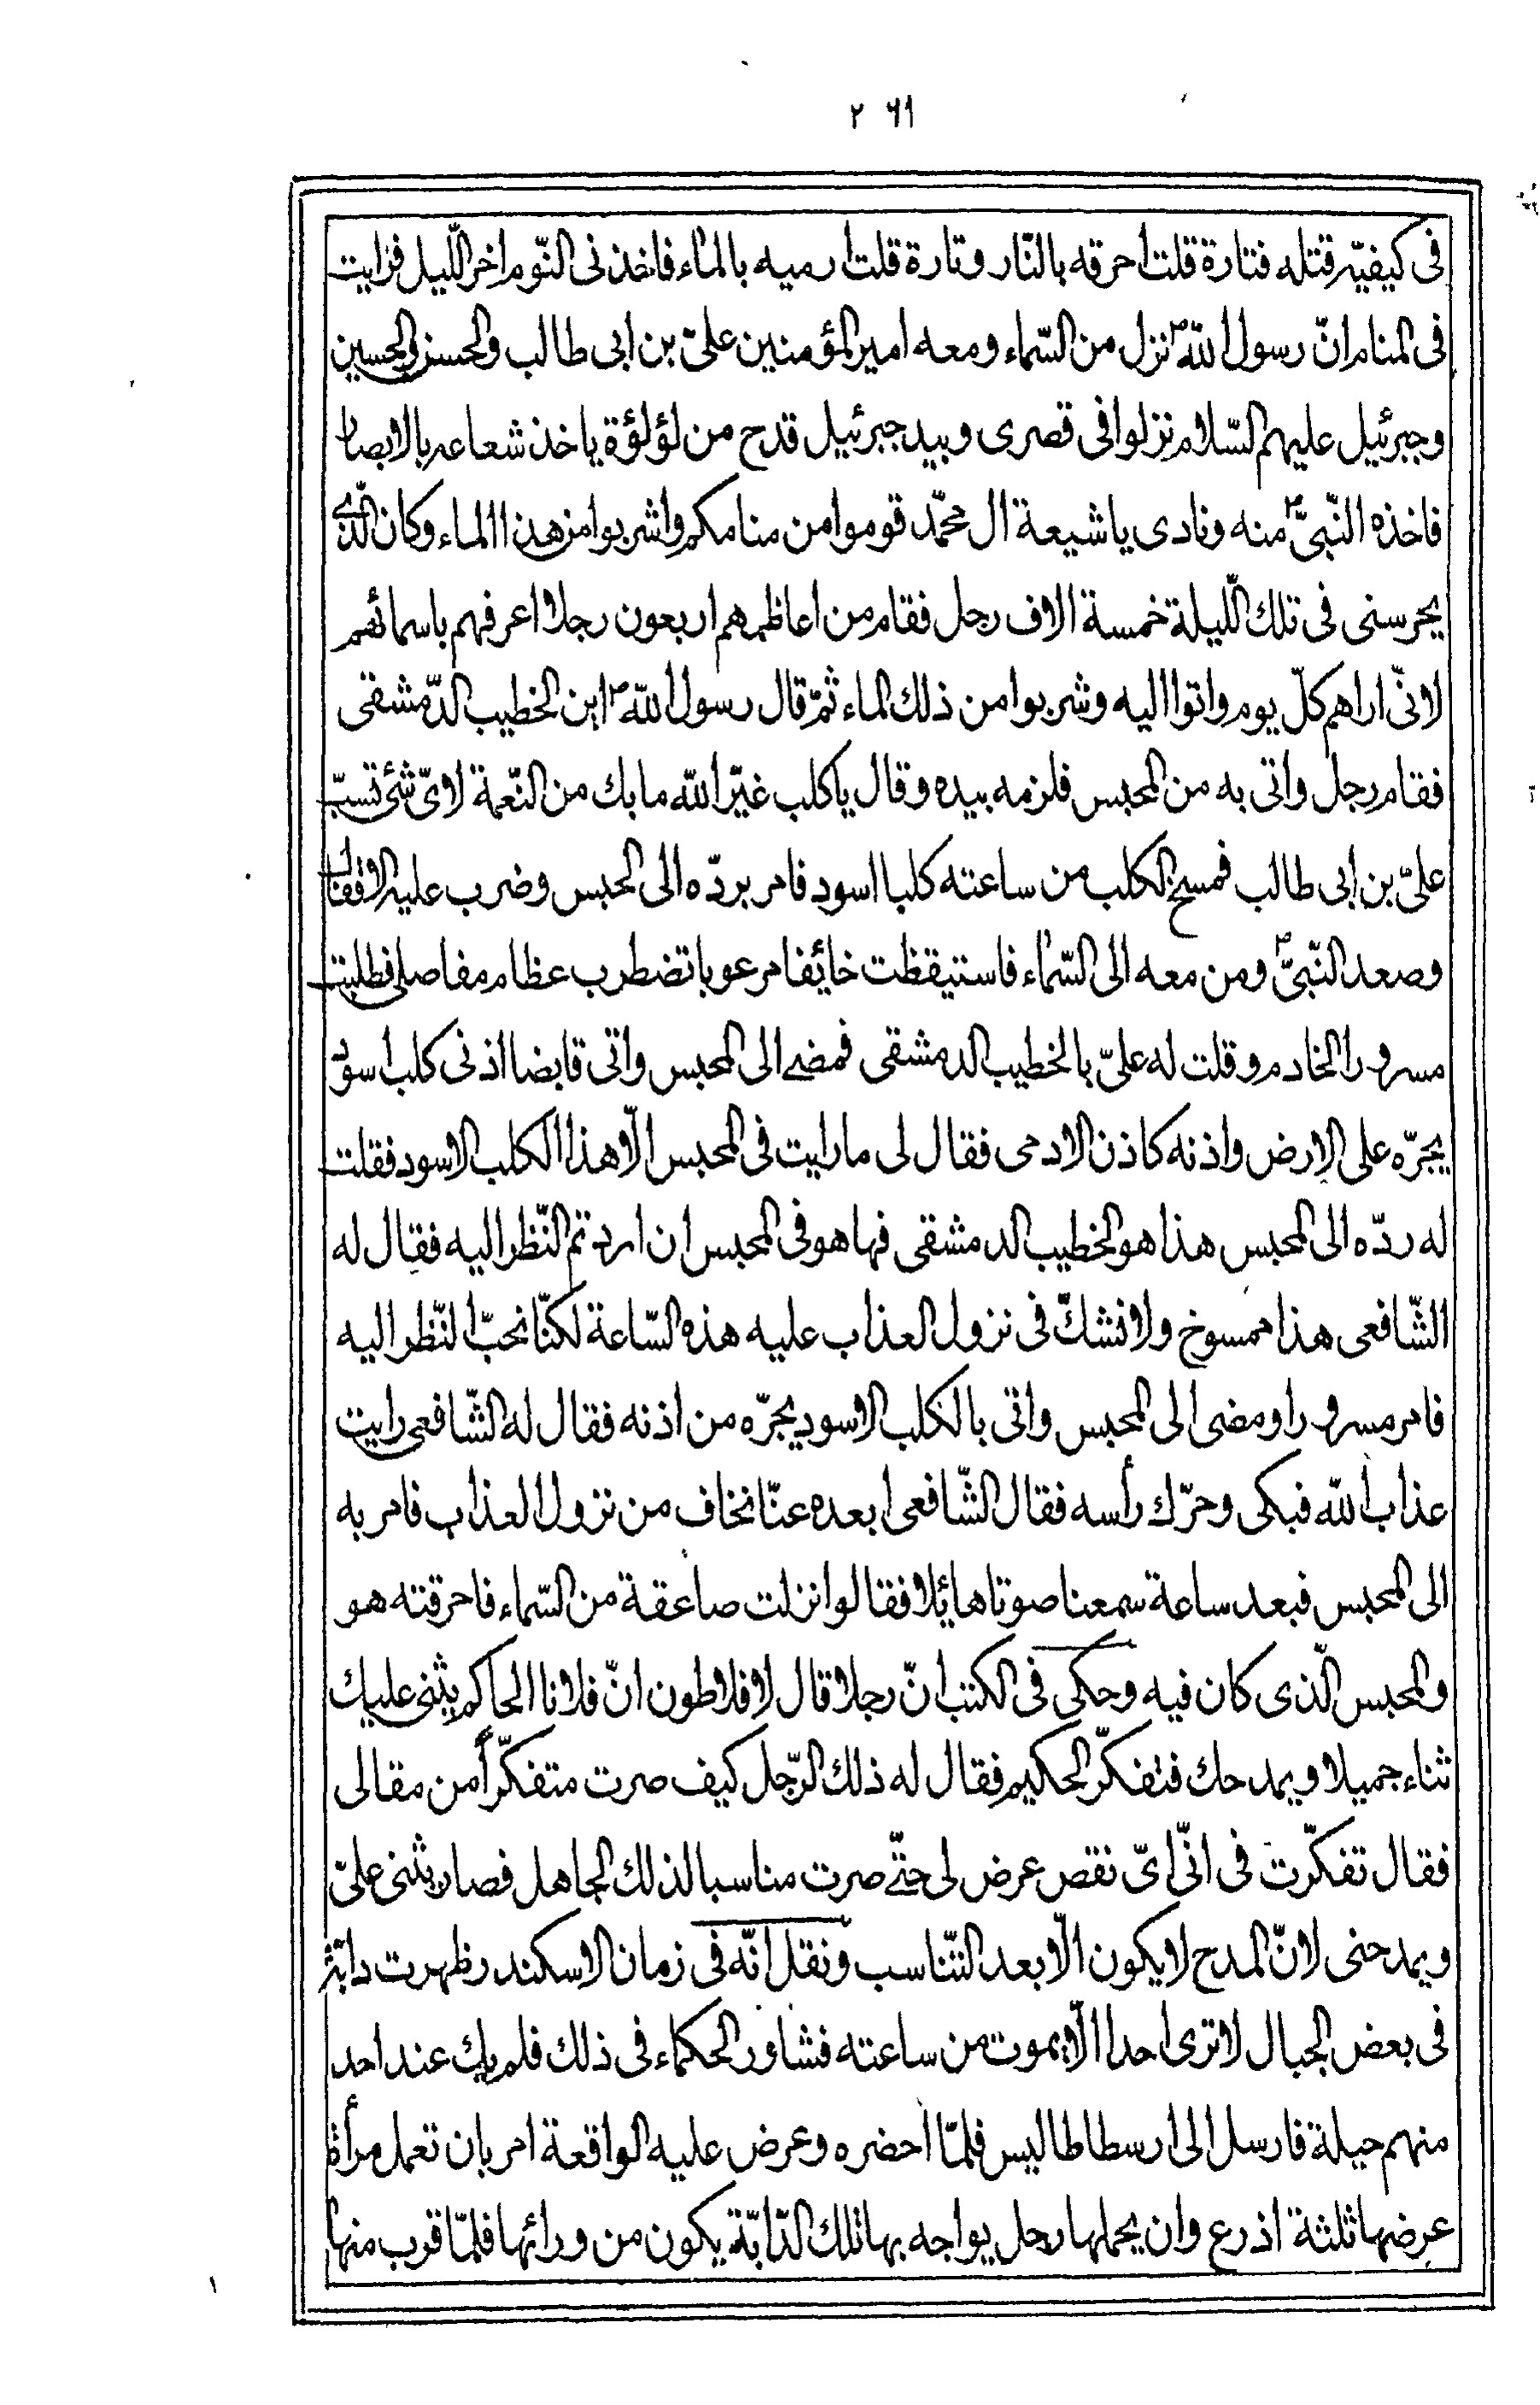 ٢٦١
فى كيفيّة قتله فتارة قلت احرقه بالنّار وتارة قلت ارميه بالماء فاخذنى النّوم اخر اللّيل فرايت
فى المنام انّ رسول اللّه ص نزل من السّماء ومعه امير المؤمنين علىّ بن ابى طالب والحسن والحسين
وجبرئيل عليهم السّلام نزلوا فى قصرى وبيد جبرئيل قدح من لؤلؤة ياخذ شعاعه بالابصار
فاخذه النّبىّ ص منه ونادى يا شيعة ال محمّد قوموا من منامكم واشربوا من هذا الماء وكان الّذى
يحرسنى فى تلك اللّيلة خمسة الاف رجل فقام من اعاظمهم اربعون رجلا اعرفهم باسمائهم
لانّى اراهم كلّ يوم واتوا اليه وشربوا من ذلك الماء ثمّ قال رسول اللّه ص اين الخطيب الدّمشقى
فقام رجل واتى به من المحبس فلزمه بيده وقال يا كلب غيّر اللّه ما بك من النّعمة لاىّ شئ تسبّ
علىّ بن ابى طالب فمسخ الكلب من ساعته كلبا اسود فامر بردّه الى الحبس وضرب عليه الاقفال
وصعد النّبىّ ص ومن معه الى السّماء فاستيقظت خائفا مرعوبا تضطرب عظام مفاصلى فطلبت
مسرورا الخادم وقلت له علىّ بالخطيب الدمشقى فمضى الى المحبس واتى قابضا اذنى كلب اسود
يجرّه على الارض واذنه كاذن الادمى فقال لى ما رايت فى المحبس الّا هذا الكلب الاسود فقلت
له ردّه الى المحبس هذا هو الخطيب الدمشقى فها هو فى المحبس ان اردتم النّظر اليه فقال له
الشّافعى هذا ممسوخ ولا نشكّ فى نزول العذاب عليه هذه السّاعة لكنّا نحبّ النّظر اليه
فامر مسرورا ومضى الى المحبس واتى بالكلب الاسود يجرّه من اذنه فقال له الشّافعى رايت
عذاب اللّه فبكى وحرّك رأسه فقال الشّافعى ابعده عنّا نخاف من نزول العذاب فامر به
الى المحبس فبعد ساعة سمعنا صوتا هائلا فقالوا نزلت صاعقة من السّماء فاحرقته هو
والمحبس الّذى كان فيه وحكى فى الكتب انّ رجلا قال لافلاطون انّ فلانا الحاكم يثنى عليك
ثناء جميلا ويمدحك فتفكّر الحكيم فقال له ذلك الرّجل كيف صرت متفكّراً من مقالى
فقال تفكّرت فى انّى اىّ نقص عرض لى حتّى صرت مناسبا لذلك الجاهل فصار يثنى علىّ
ويمدحنى لانّ المدح لا يكون الّا بعد التّناسب ونقل انّه فى زمان الاسكندر ظهرت دابّة
فى بعض الجبال لا ترى احدا الّا يموت من ساعته فشاور الحكماء فى ذلك فلم يك عند احد
منهم حيلة فارسل الى ارسطاطاليس فلمّا احضره وعرض عليه الواقعة امر بان تعمل مرأة
عرضها ثلثة اذرع وان يحملها رجل يواجه بها تلك الدّابّة يكون من ورائها فلمّا قرب منها